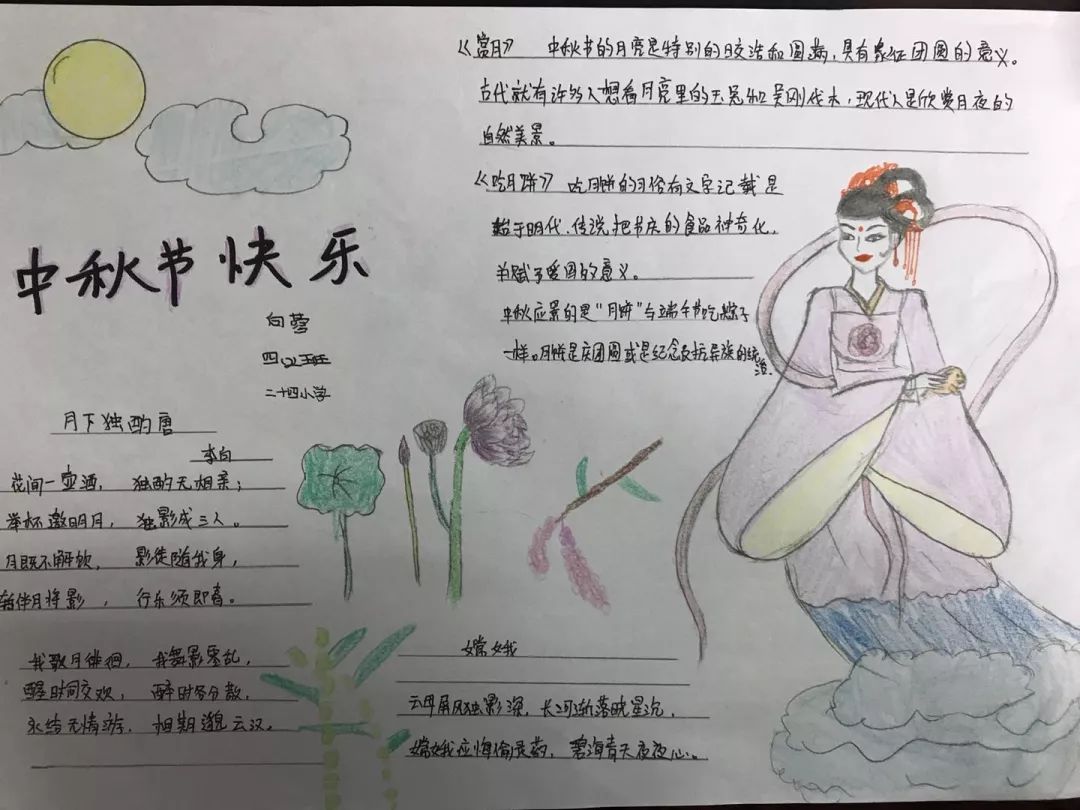 中秋节快乐
向蓉
四(2)班
二十四小学
《赏月》 中秋节的月亮是特别的皎洁和圆满,具有象征团圆的意义。
古代就有许多人想看月亮里的玉兔和吴刚伐木,现代人是欣赏月夜的
自然美景。
《吃月饼》 吃月饼的习俗有文字记载是
始于明代.传说把节庆的食品神奇化,
并赋予爱国的意义。
中秋应景的是"月饼"与端午节吃粽子
一样。月饼是庆团圆或是纪念反抗异族的统
治.
月下独酌唐
李白
花间一壶酒, 独酌无相亲;
举杯邀明月, 独影成三人。
月既不解饮, 影徒随我身,
暂伴月将影, 行乐须即春。
我歌月徘徊, 我舞影零乱,
醒时同交欢, 醉时各分散,
永结无情游, 相期邈云汉。
嫦娥
云母屏风独影深, 长河渐落晓星沉,
嫦娥应悔偷灵药, 碧海青天夜夜心。